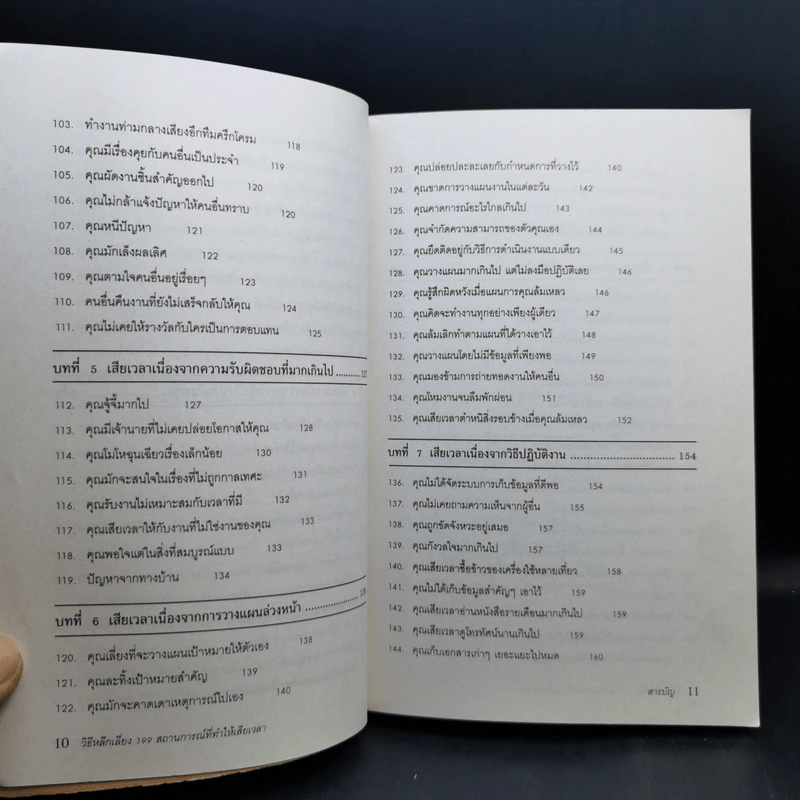 103. ทำงานท่ามกลางเสียงอึกทึมครึกโครม 118
104. คุณมีเรื่องคุยกับคนอื่นเป็นประจำ 119
105. คุณผัดงานชิ้นสำคัญออกไป 120
106. คุณไม่กล้าแจ้งปัญหาให้คนอื่นทราบ 120
107. คุณหนีปัญหา 121
108. คุณมักเล็งผลเลิศ 122
109. คุณตามใจคนอื่นอยู่เรื่อยๆ 123
110. คนอื่นคืนงานที่ยังไม่เสร็จกลับให้คุณ 124
111. คุณไม่เคยให้รางวัลกับใครเป็นการตอบแทน 125
บทที่ 5 เสียเวลาเนื่องจากความรับผิดชอบที่มากเกินไป ..........
112. คุณจู้จี้มากไป 127
113. คุณมีเจ้านายที่ไม่เคยปล่อยโอกาสให้คุณ 128
114. คุณโมโหฉุนเฉียวเรื่องเล็กน้อย 130
115. คุณมักจะสนใจในเรื่องที่ไม่ถูกกาลเทศะ 131
116. คุณรับงานไม่เหมาะสมกับเวลาที่มี 132
117. คุณเสียเวลาให้กับงานที่ไม่ใช่งานของคุณ 133
118. คุณพอใจแต่ในสิ่งที่สมบูรณ์แบบ 133
119. ปัญหาจากทางบ้าน 134
บทที่ 6 เสียเวลาเนื่องจากการวางแผนล่วงหน้า ..................
120. คุณเลี่ยงที่จะวางแผนเป้าหมายให้ตัวเอง 138
121. คุณละทิ้งเป้าหมายสำคัญ 139
122. คุณมักจะคาดเดาเหตุการณ์ไปเอง 140
10 วิธีหลีกเลี่ยง 199 สถานการณ์ที่ทำให้เสียเวลา
123. คุณปล่อยปละละเลยกับกำหนดการที่วางไว้ 140
124. คุณขาดการวางแผนงานในแต่ละวัน 142
125. คุณคาดการณ์อะไรไกลเกินไป 143
126. คุณจำกัดความสามารถของตัวคุณเอง 144
127. คุณยึดติดอยู่กับวิธีการดำเนินงานแบบเดียว 145
128. คุณวางแผนมากเกินไป แต่ไม่ลงมือปฏิบัติเลย 146
129. คุณรู้สึกผิดหวังเมื่อแผนการคุณล้มเหลว 146
130. คุณคิดจะทำงานทุกอย่างเพียงผู้เดียว 147
131. คุณล้มเลิกทำตามแผนที่ได้วางเอาไว้ 148
132. คุณวางแผนโดยไม่มีข้อมูลที่เพียงพอ 149
133. คุณมองข้ามการถ่ายทอดงานให้คนอื่น 150
134. คุณโหมงานจนลืมพักผ่อน 151
135. คุณเสียเวลาตำหนิสิ่งรอบข้างเมื่อคุณล้มเหลว 152
บทที่ 7 เสียเวลาเนื่องจากวิธีปฏิบัติงาน .............................. 154
136. คุณไม่ได้จัดระบบการเก็บข้อมูลที่ดีพอ 154
137. คุณไม่เคยถามความเห็นจากผู้อื่น 155
138. คุณถูกขัดจังหวะอยู่เสมอ 157
139. คุณกังวลใจมากเกินไป 157
140. คุณเสียเวลาซื้อข้าวของเครื่องใช้หลายเที่ยว 158
141. คุณไม่ได้เก็บข้อมูลสำคัญๆ เอาไว้ 159
142. คุณเสียเวลาอ่านหนังสือรายเดือนมากเกินไป 159
143. คุณเสียเวลาดูโทรทัศน์นานเกินไป 159
144. คุณเก็บเอกสารเก่าๆ เยอะแยะไปหมด 160
สารบัญ 11